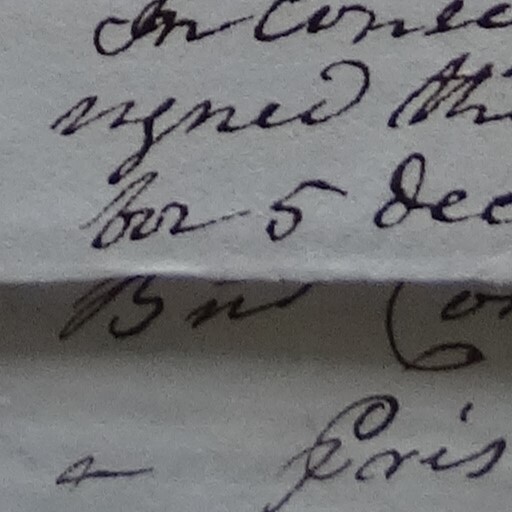 In Conse
signed th
for 5 Dec
Bm Co
- Pris